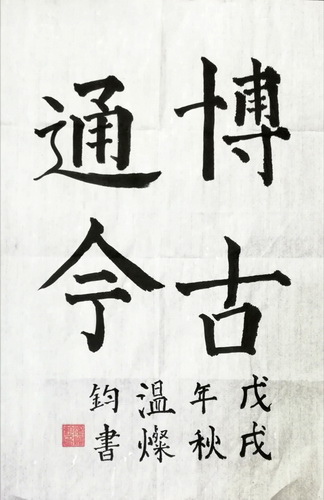 博古
通今
戊戌
年秋
温燦
鈞書